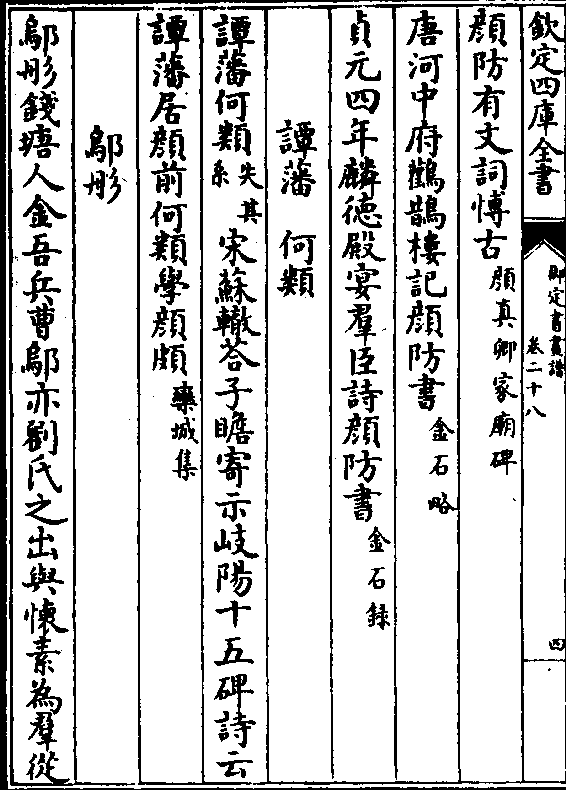 欽定四庫全書
御定書畫譜
卷二十八
四
顔防有文詞愽古顔真卿家廟碑
唐河中府鸛鵲樓記顔防書金石略
貞元四年麟德殿宴羣臣詩顔防書金石録
譚藩 何類
譚藩何類失其系宋蘇轍荅子瞻寄示岐陽十五碑詩云
譚藩居顔前何類學顔頗欒城集
鄔彤
鄔彤錢塘人金吾兵曹鄔亦劉氏之出與懐素為羣從